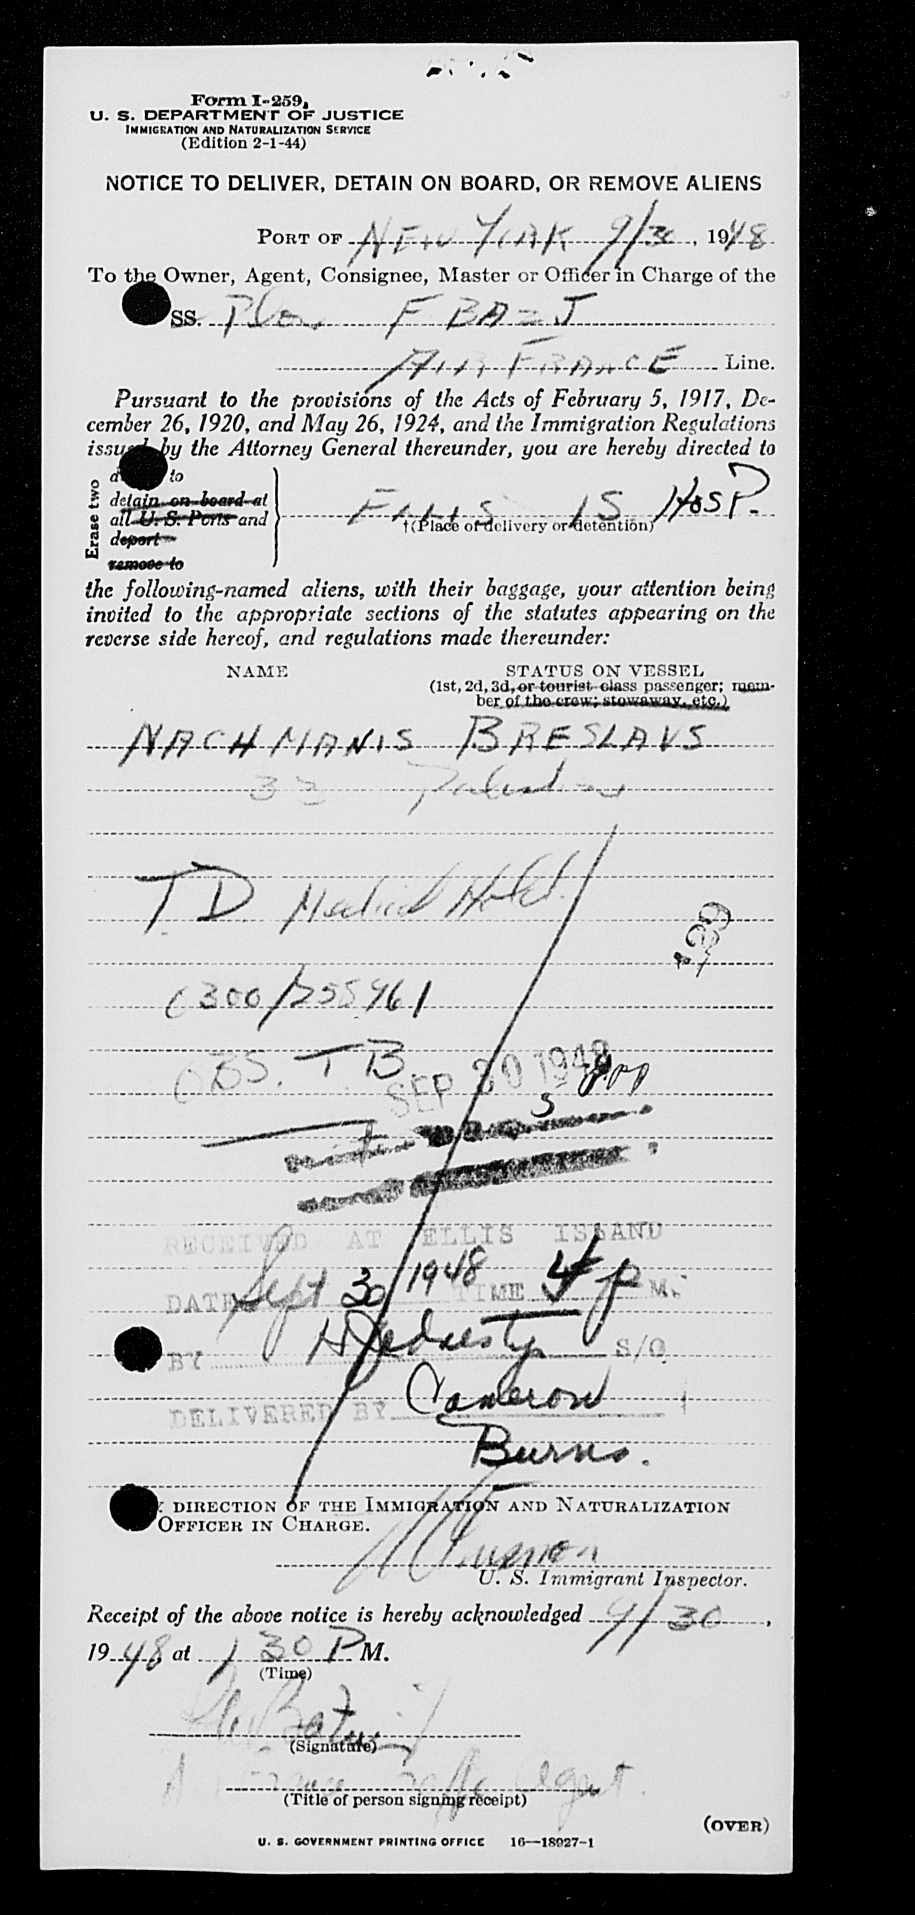 Form I-259
U. S. DEPARTMENT OF JUSTICE
IMMIGRATION AND NATURALIZATION SERVICE
(Edition 2-1-44)
NOTICE TO DELIVER, DETAIN ON BOARD, OR REMOVE ALIENS
PORT OF NEW YORK 9/30, 1948
To the Owner, Agent, Consignee, Master or Officer in Charge of the
SS. F BA=J
AIR FRANCE Line.
Pursuant to the provisions of the Acts of February 5, 1917, De-
cember 26, 1920, and May 26, 1924, and the Immigration Regulations
issued by the Attorney General thereunder, you are hereby directed to
Erase two
to
detain on board at
all U. S. Ports and
deport
remove to
ELLIS IS HOSP.
†(Place of delivery or detention)
the following-named aliens, with their baggage, your attention being
invited to the appropriate sections of the statutes appearing on the
reverse side hereof, and regulations made thereunder:
NAME STATUS ON VESSEL
(1st, 2d, 3d, or tourist class passenger; mem-
ber of the crew; stowaway, etc.)
NACHMANIS BRESLAVS
33 Palestine
T.D. Medical Hold.
0300/255961
OBS. T B.
SEP 30 1948
RECEIVED AT ELLIS ISLAND
DATE Sept 30 1948 TIME 4 P M.
BY S/O
DELIVERED BY Cameron
Burns.
DIRECTION OF THE IMMIGRATION AND NATURALIZATION
OFFICER IN CHARGE.
U. S. Immigrant Inspector.
Receipt of the above notice is hereby acknowledged 9/30,
1948 at 1 30 P M.
(Time)
(Signature)
Air France Traffic Agent.
(Title of person signing receipt)
(OVER)
U. S. GOVERNMENT PRINTING OFFICE 16—18927-1